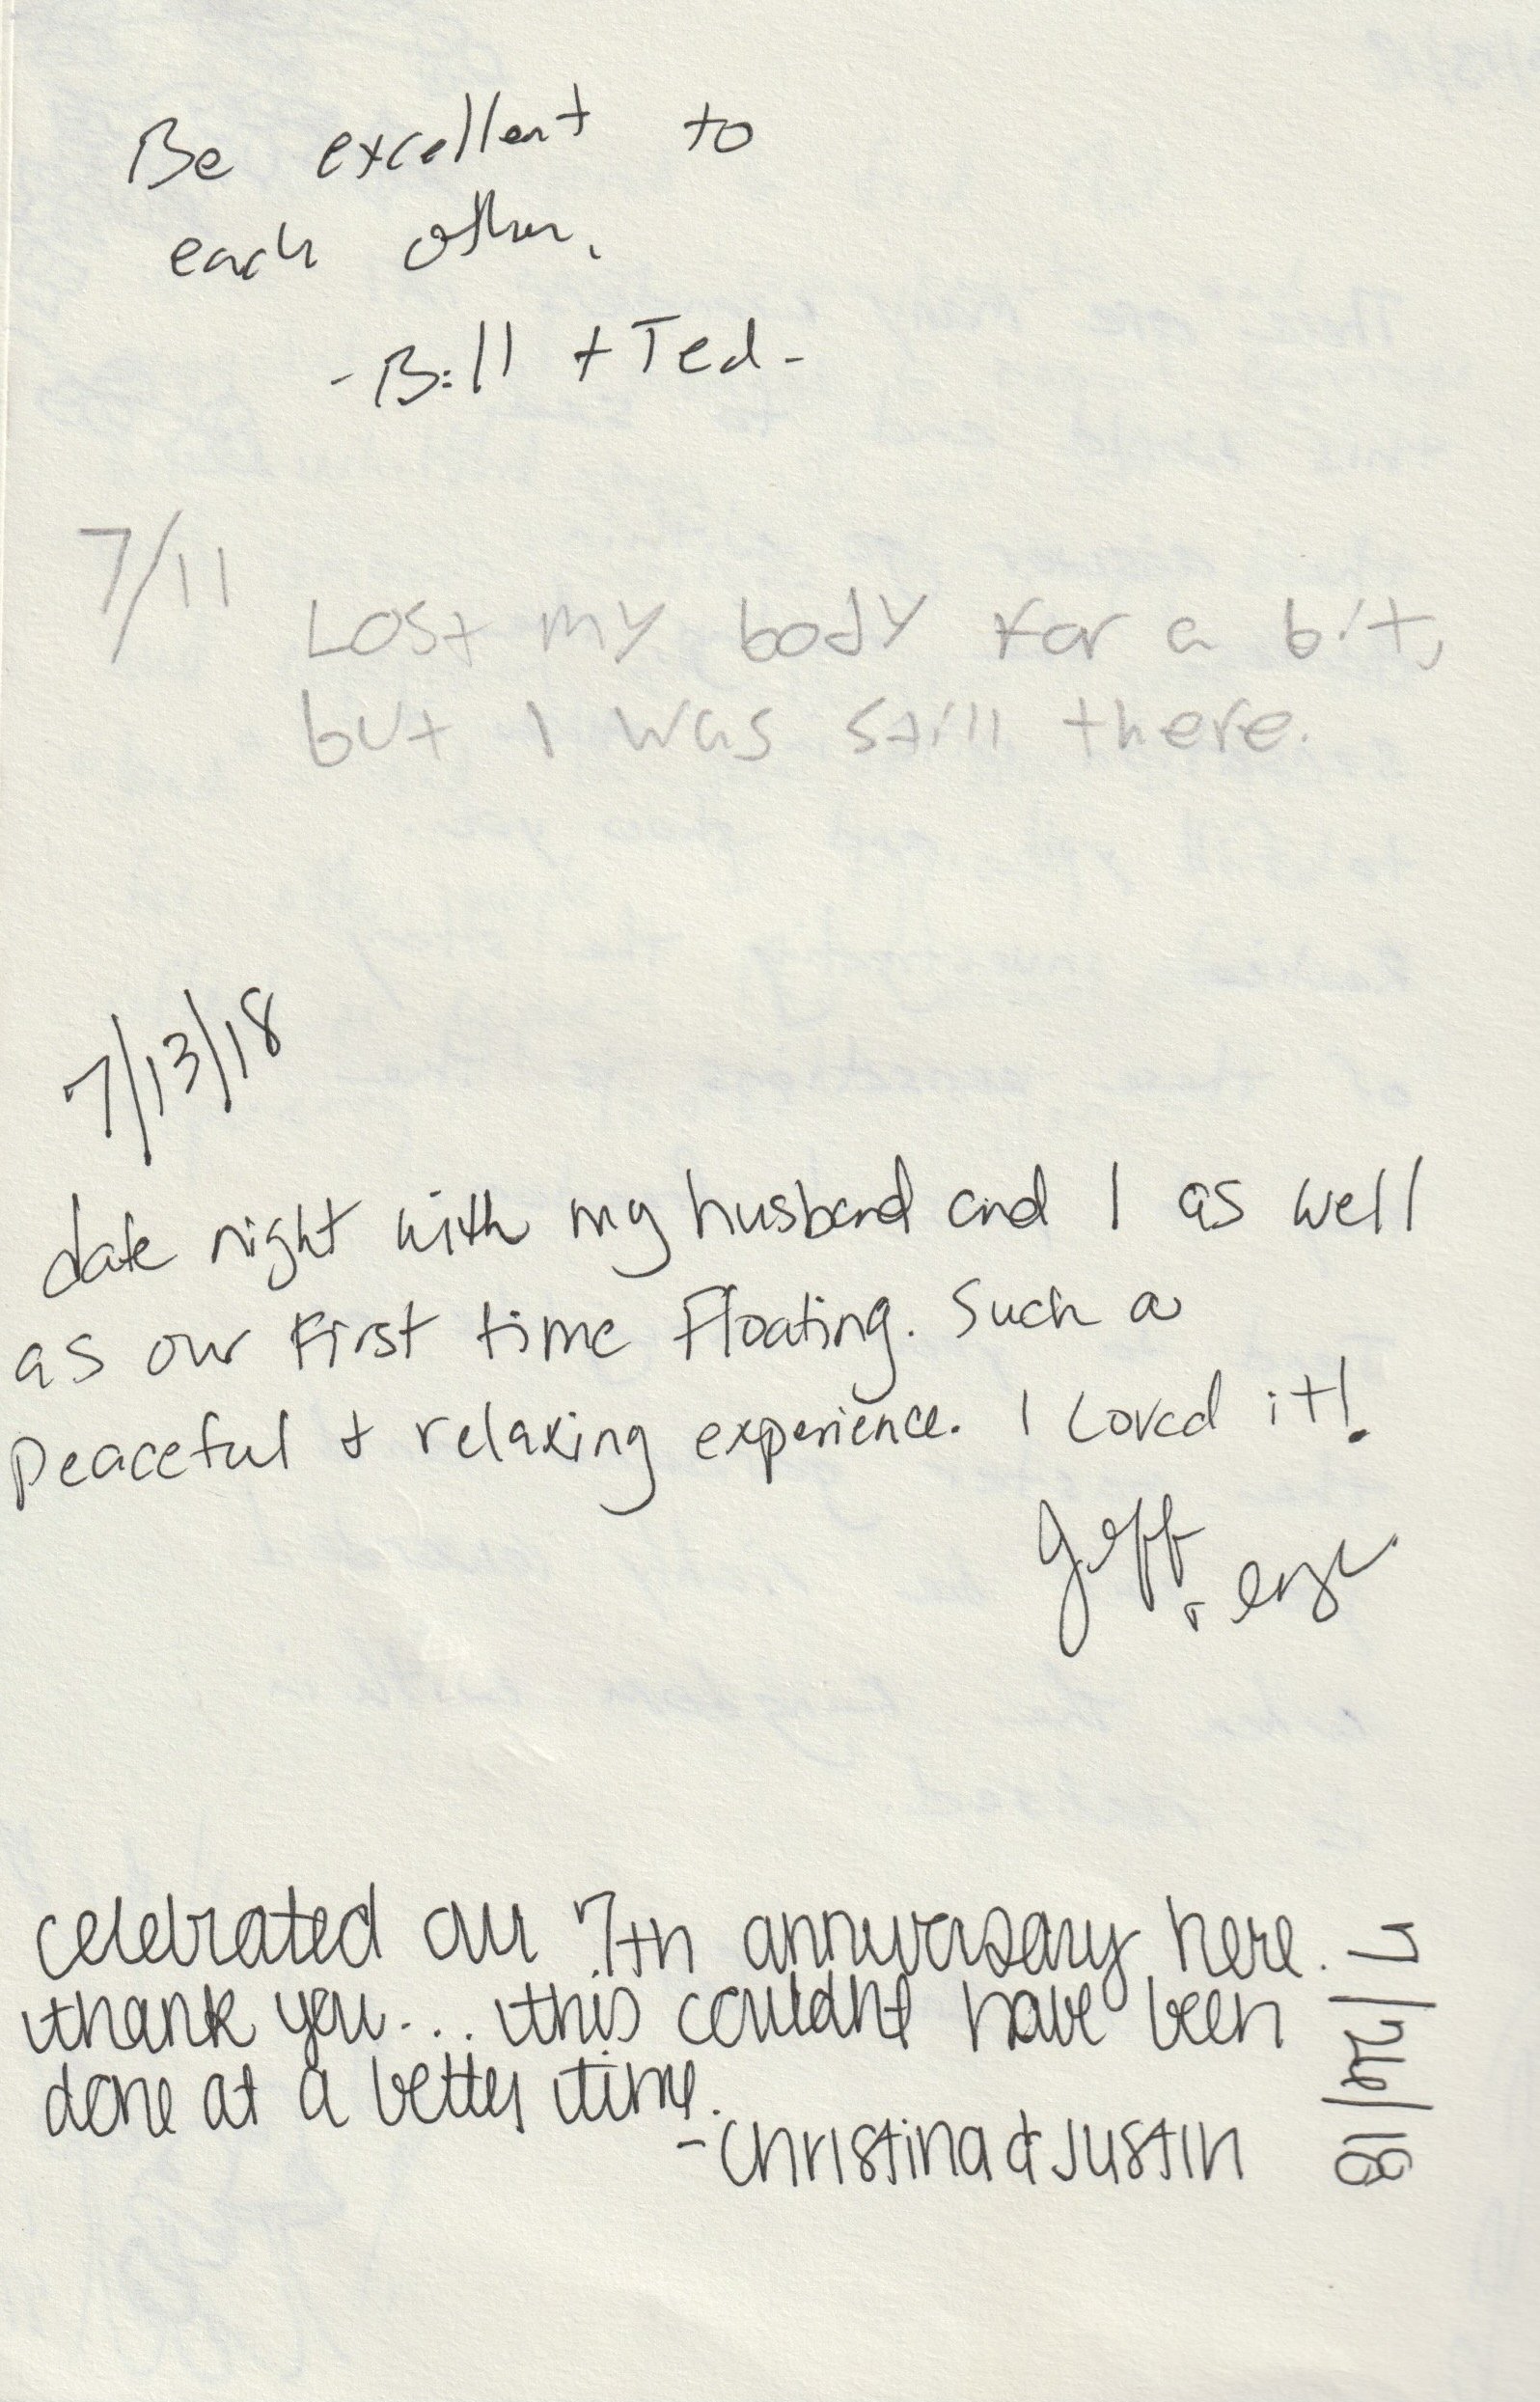 Be excellent to
each other.
- Bill + Ted -
7/11
Lost my body for a bit,
but I was still there.
7/13/18
date night with my husband and I as well
as our First time Floating. Such a
Peaceful + relaxing experience. I Loved it!
Jeff
+
celebrated our 7th anniversary here.
thank you... this couldnt have been
done at a better time.
- Christina & Justin